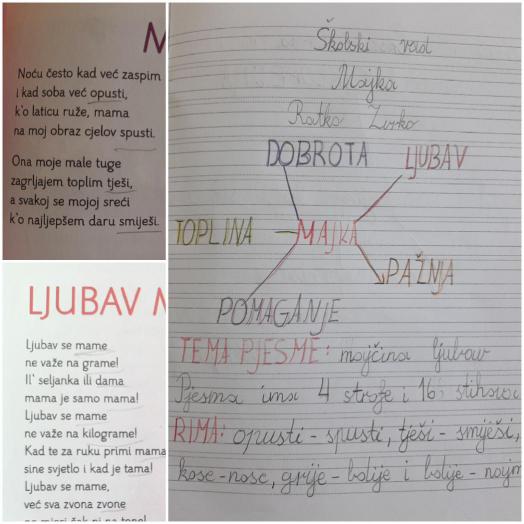 M
Noću često kad već zaspim
i kad soba već opusti,
k'o laticu ruže, mama
na moj obraz cjelov spusti.
Ona moje male tuge
zagrljajem toplim tješi,
a svakoj se mojoj sreći
k'o najljepšem daru smiješi.
LJUBAV M
Ljubav se mame
ne važe na grame!
Il' seljanka ili dama
mama je samo mama!
Ljubav se mame
ne važe na kilograme!
Kad te za ruku primi mama
sine svjetlo i kad je tama!
Ljubav se mame,
već sva zvona zvone
Školski rad
Majka
Ratko Zvrko
DOBROTA
LJUBAV
TOPLINA
MAJKA
PAŽNJA
POMAGANJE
TEMA PJESME: majčina ljubav
Pjesma ima 4 strofe i 16 stihova
RIMA: opusti - spusti, tješi - smiješi,
kose - nose, grije - bolije i bolije -